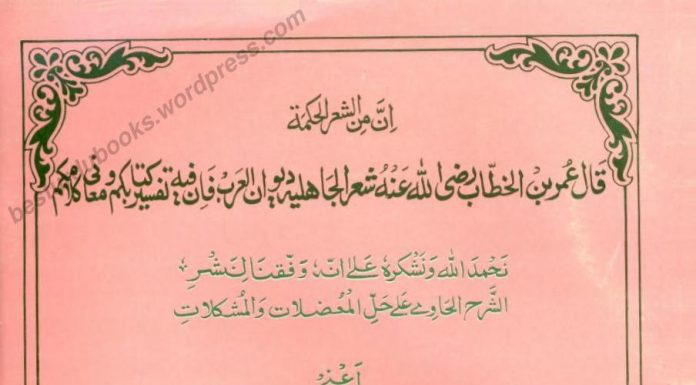 اِنَّ مِنَ الشعرِ لحِكمَة
قَالَ عُمر بن الخطّاب رضى الله عَنْهُ شعر الجَاهلية ديوان العَرَب فَاِن فيهِ تفسير كتابكم ومعانى كلامكم
نَحمدَ اللهَ وَنَشكرهُ عَلىٰ انّهٗ وَفّقنَا لِنَشرِ
الشَّرح الحَاوِى عَلىٰ حَلِّ المُعضِلات وَالمُشكلاتِ
اَعنِى